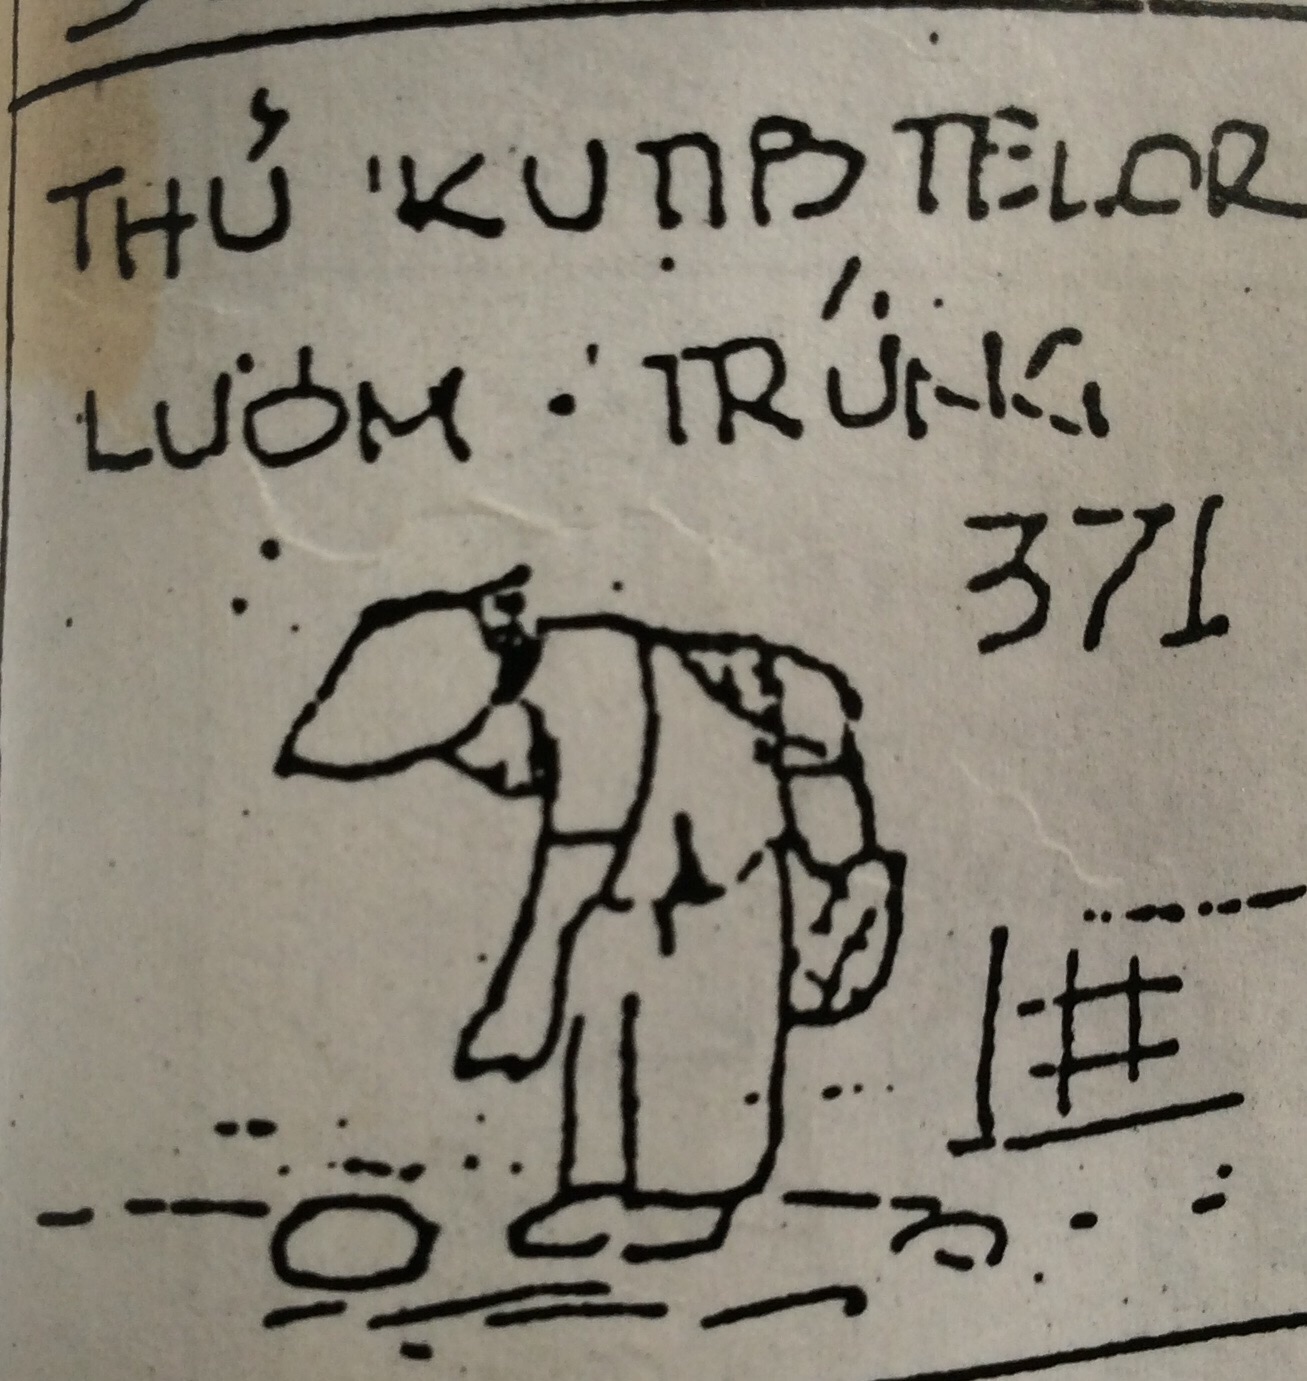 THỦ KUNB TELOR
LƯỢM TRỨNG
371